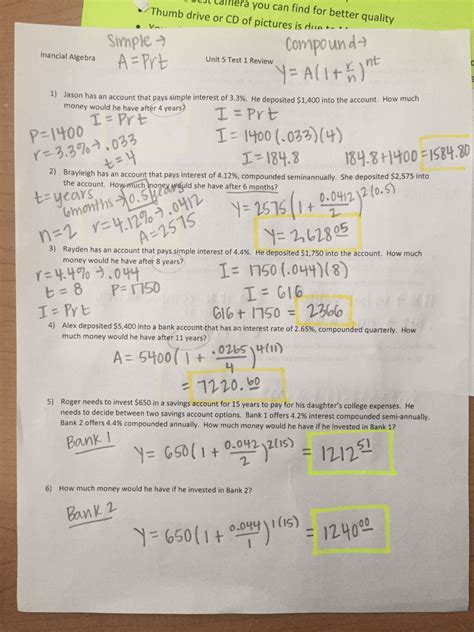 camera you can find for better quality
• Thumb drive or CD of pictures is due to
Simple → Compound →
inancial Algebra A = Prt Unit 5 Test 1 Review Y = A(1 + r/n)^nt
1) Jason has an account that pays simple interest of 3.3%. He deposited $1,400 into the account. How much
money would he have after 4 years?
I = Prt I = Prt
P = 1400 I = 1400 (.033)(4)
r = 3.3% → .033
t = 4 I = 184.8 184.8 + 1400 = 1584.80
2) Brayleigh has an account that pays interest of 4.12%, compounded seminannually. She deposited $2,575 into
the account. How much money would she have after 6 months?
t = years
6 months → 0.5 years Y = 2575 (1 + 0.0412/2)^2(0.5)
n = 2 r = 4.12% → .0412
A = 2575 Y = 2,628.05
3) Rayden has an account that pays simple interest of 4.4%. He deposited $1,750 into the account. How much
money would he have after 8 years?
r = 4.4% → .044 I = 1750 (.044)(8)
t = 8 P = 1750 I = 616
I = Prt 616 + 1750 = 2366
4) Alex deposited $5,400 into a bank account that has an interest rate of 2.65%, compounded quarterly. How
much money would he have after 11 years?
A = 5400 (1 + .0265/4)^4(11)
= 7220.60
5) Roger needs to invest $650 in a savings account for 15 years to pay for his daughter's college expenses. He
needs to decide between two savings account options. Bank 1 offers 4.2% interest compounded semi-annually.
Bank 2 offers 4.4% compounded annually. How much money would he have if he invested in Bank 1?
Bank 1
Y = 650 (1 + 0.042/2)^2(15) = 1212.51
6) How much money would he have if he invested in Bank 2?
Bank 2
Y = 650 (1 + 0.044/1)^1(15) = 1240.00